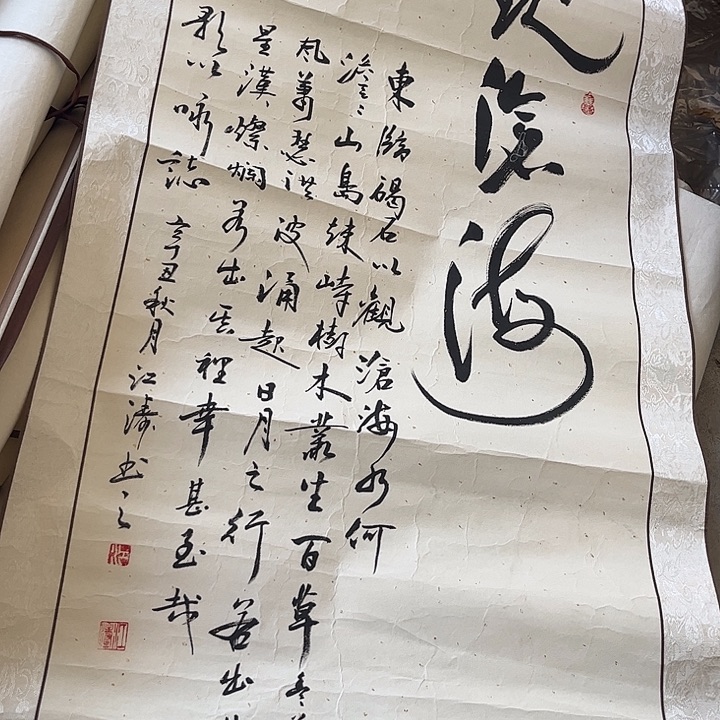 滄海
東臨碣石以觀滄海水何
澹〻山島竦峙樹木叢生百草
風蕭瑟洪波涌起日月之行若出
星漢燦爛若出其裡幸甚至哉
歌以詠誌 辛丑秋月江濤书之